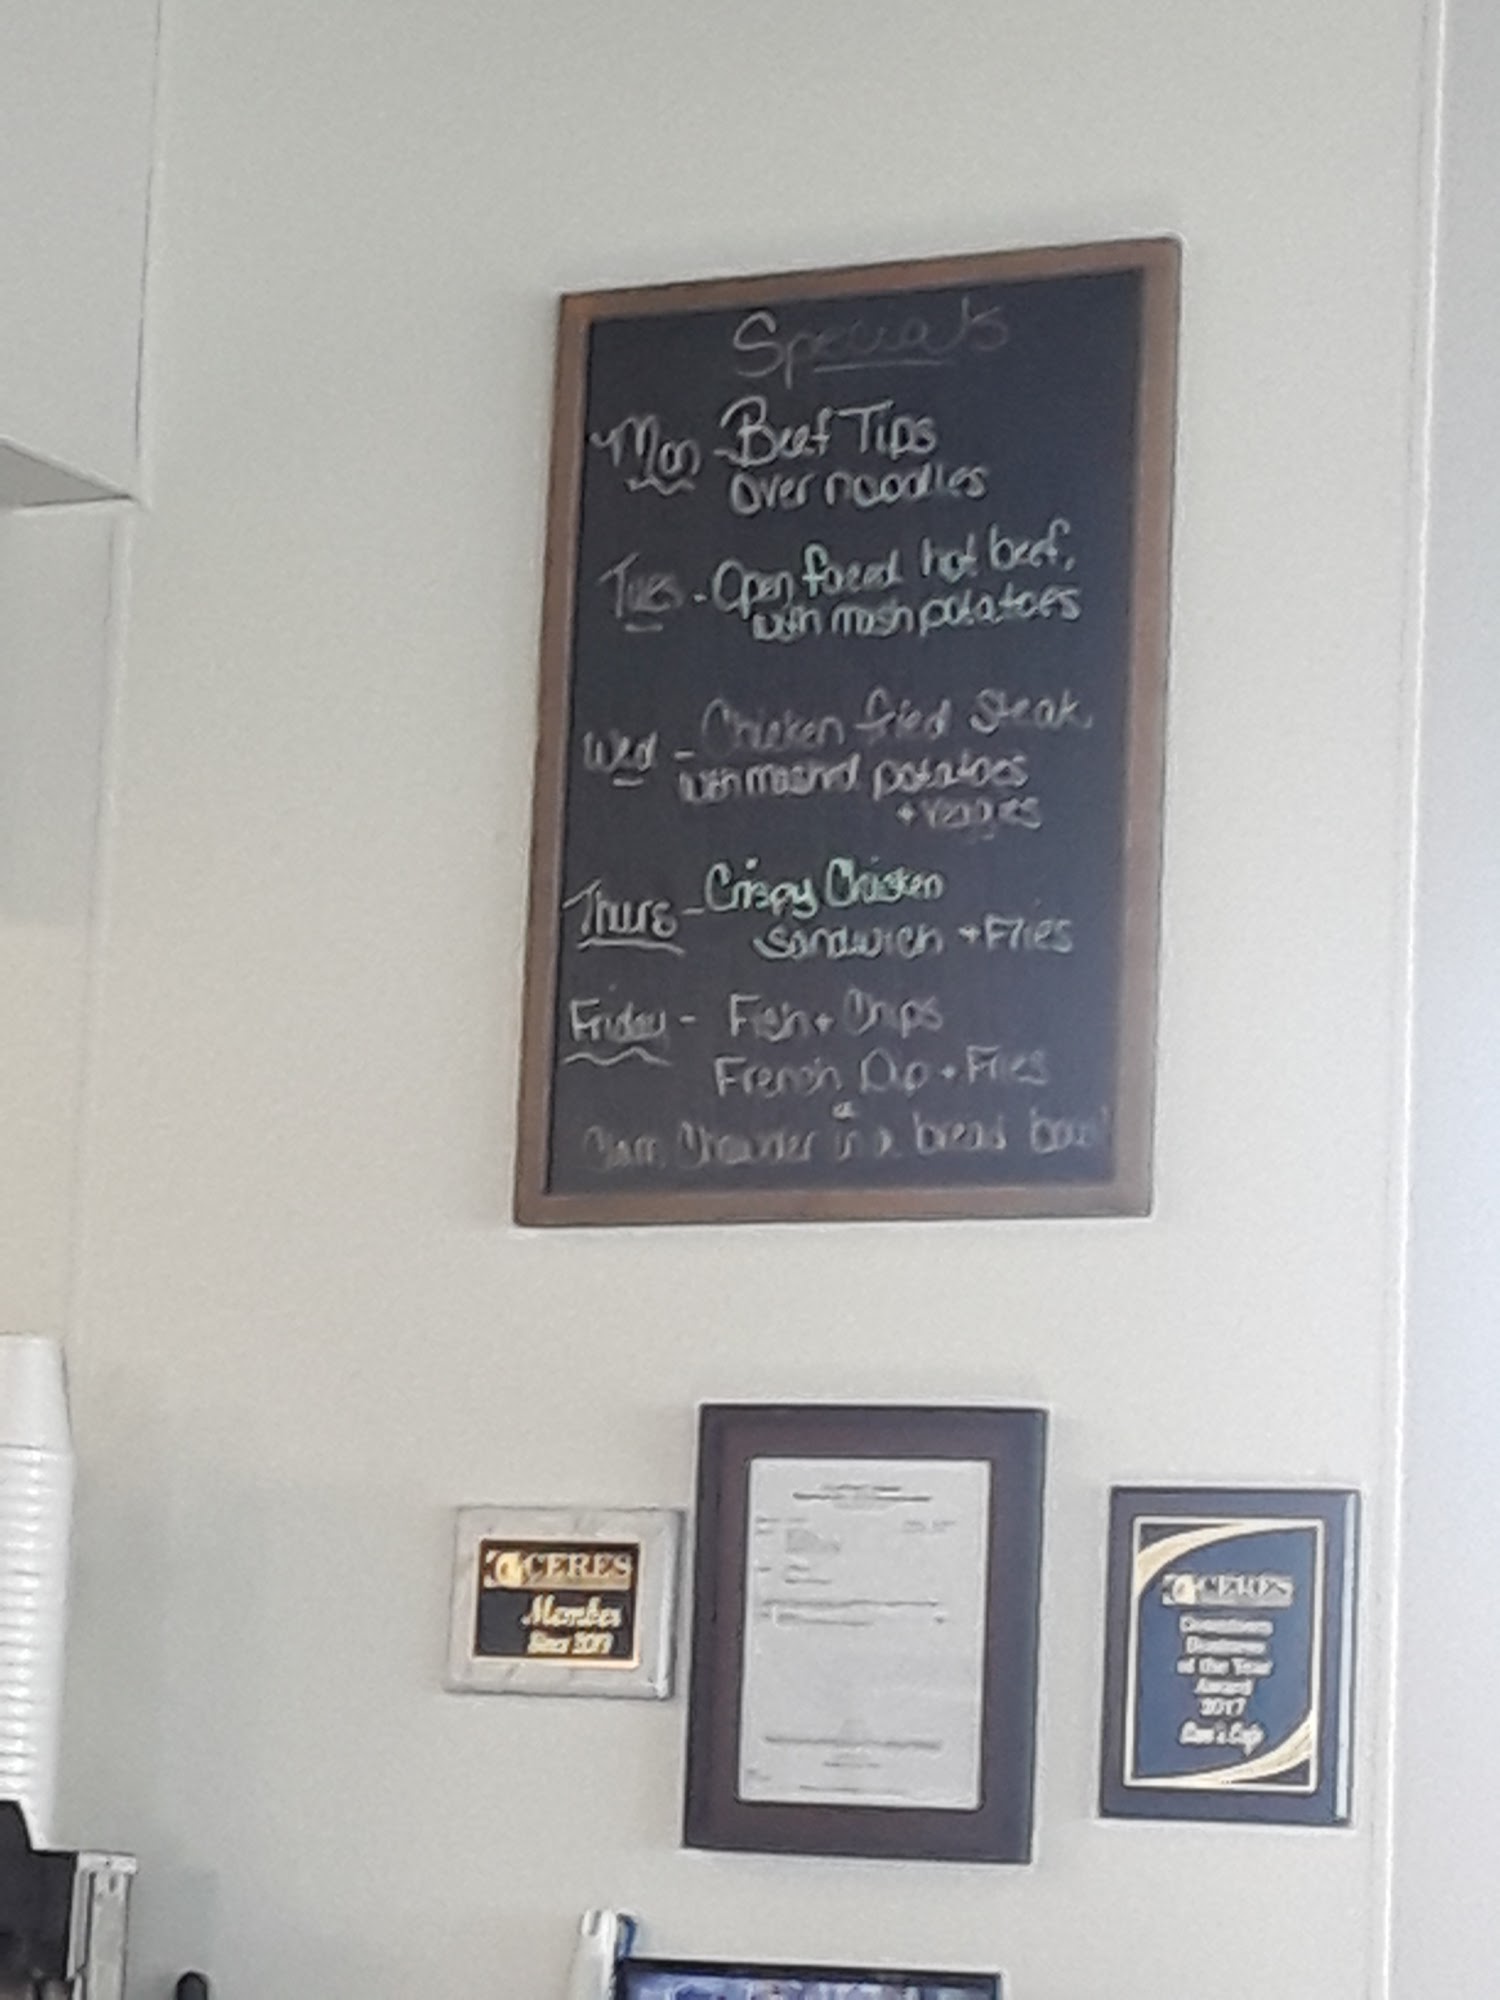 Specials
Mon - Beef Tips
over noodles
Tues - Open faced hot beef,
with mash potatoes
Wed - Chicken fried steak
with mashed potatoes
+ veggies
Thurs - Crispy Chicken
Sandwich + Fries
Friday - Fish + Chips
French Dip + Fries
or
Clam Chowder in a bread bowl
CERES
Member
Since 2017
CERES
Downtown
Business
of the Year
Award
2017